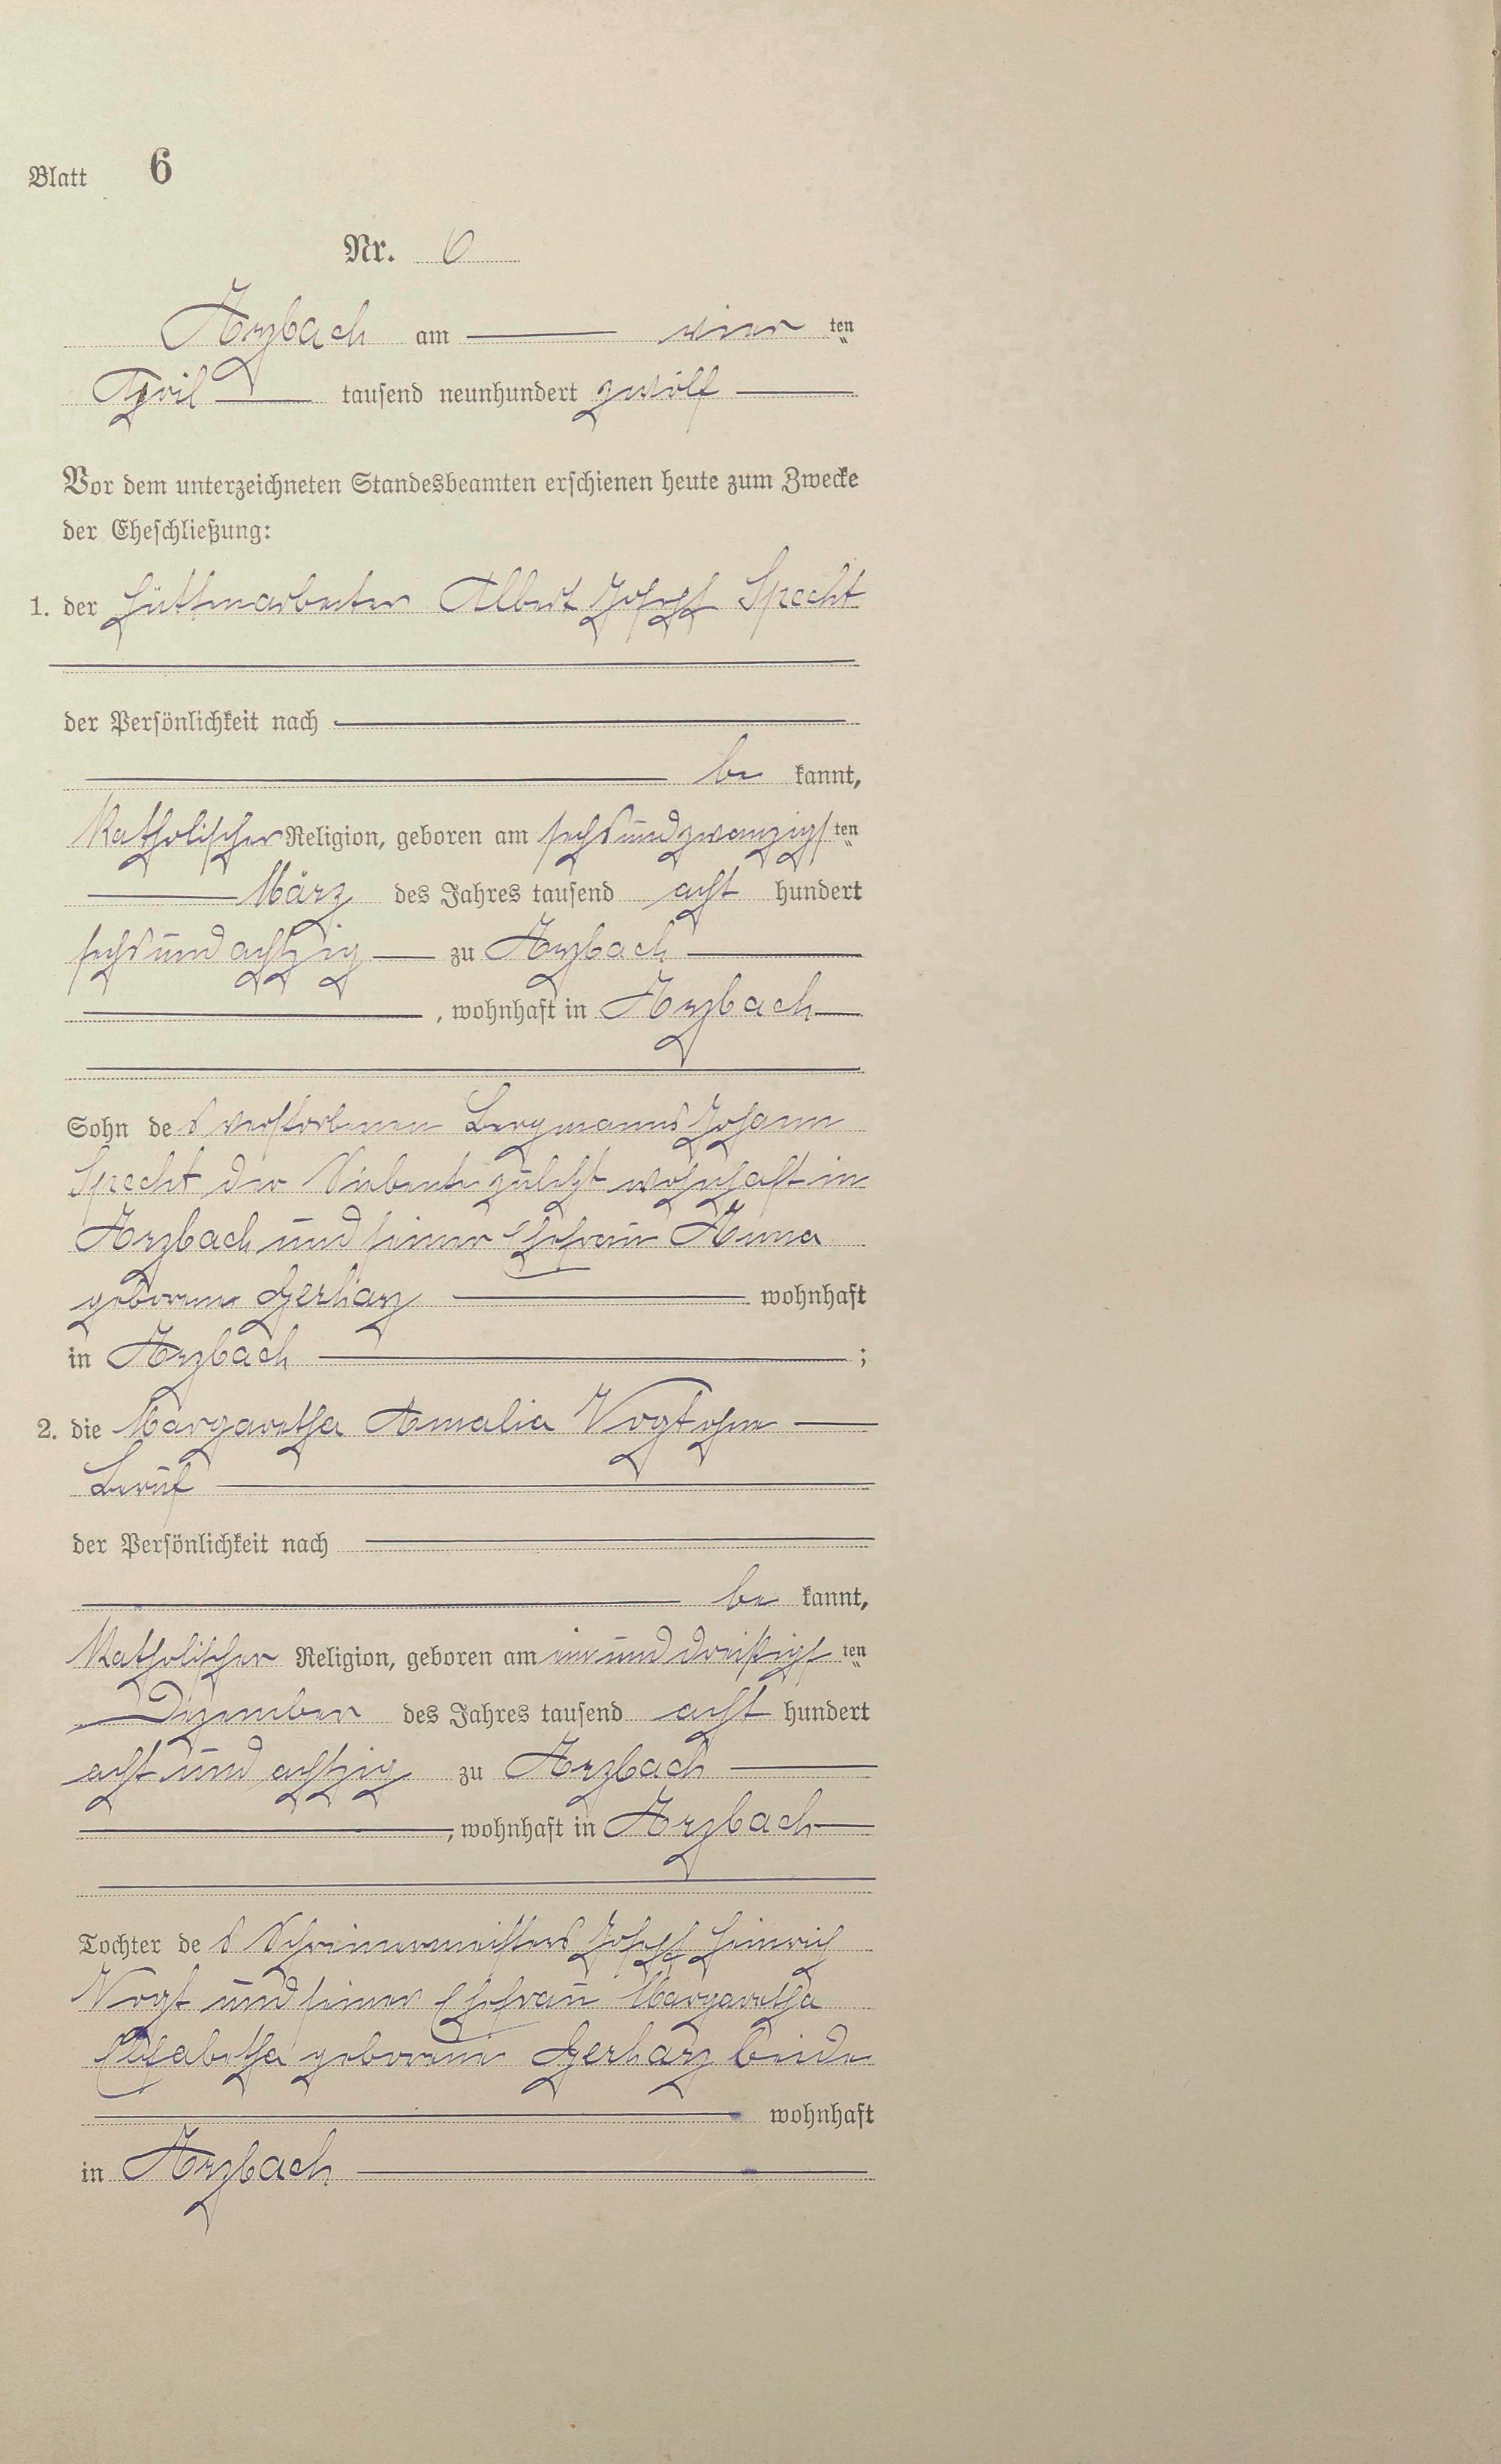 Blatt 6
Nr. 6
Arzbach am vier ten
April tausend neunhundert zwölf
Vor dem unterzeichneten Standesbeamten erschienen heute zum Zwecke
der Eheschließung:
1. der Hüttenarbeiter Albert Josef Specht
der Persönlichkeit nach
be kannt,
Katholischer Religion, geboren am sechsundzwanzigsten
März des Jahres tausend acht hundert
sechsundachtzig zu Arzbach
, wohnhaft in Arzbach
Sohn des verstorbenen Bergmanns Johann
Specht der Siebente zuletzt wohnhaft in
Arzbach und seiner Ehefrau Anna
geborene Gerharz wohnhaft
in Arzbach ;
2. die Margaretha Amalia Vogt ohne
Beruf
der Persönlichkeit nach
be kannt,
Katholischer Religion, geboren am einunddreißigsten
Dezember des Jahres tausend acht hundert
acht und achtzig zu Arzbach
, wohnhaft in Arzbach
Tochter des Schreinermeisters Josef Heinrich
Vogt und seiner Ehefrau Margaretha
Elisabetha geborene Gerharz beide
wohnhaft
in Arzbach